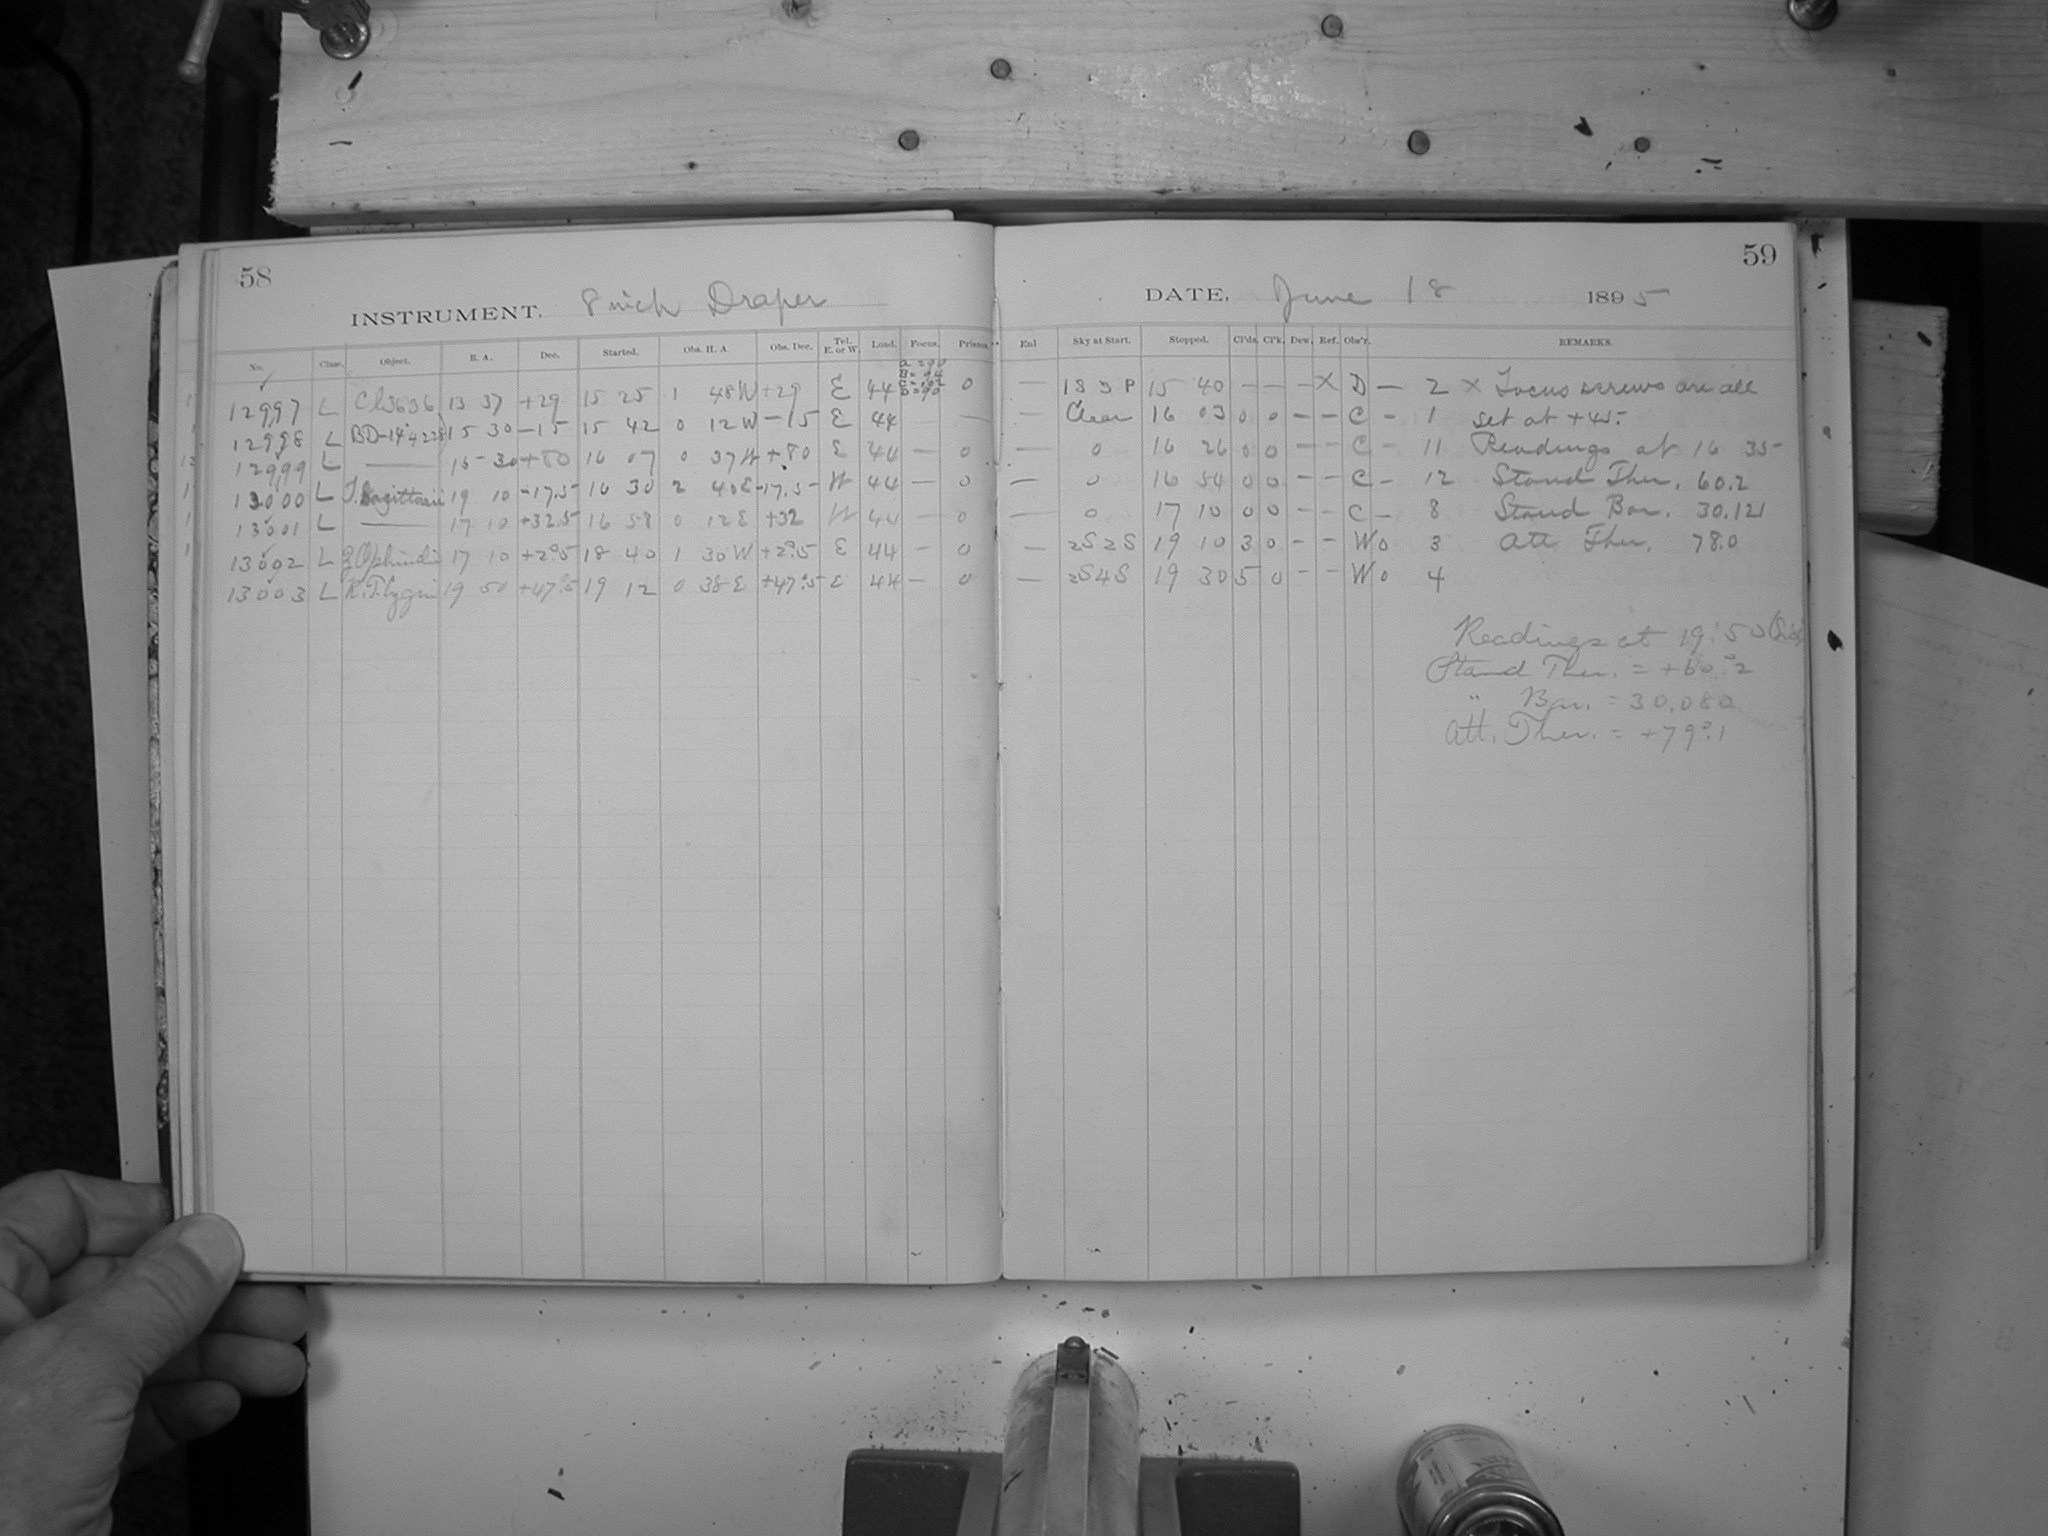 58
INSTRUMENT. 8 inch Draper
No. Class. Object. R. A. Dec. Started. Obs. H. A. Obs. Dec. Tel. E. or W. Load. Focus. Prisms.
12997 L 13 37 +29 15 25 1 48 W +29 E 44 0
12998 L BD-14°4228 15 30 -15 15 42 0 12 W -15 E 44 —
12999 L — 15 30 +80 16 07 0 37 W +80 E 44 — 0
13000 L T. Sagittarii 19 10 -17.5 16 30 2 40 E -17.5 W 44 — 0
13001 L — 17 10 +32.5 16 58 0 12 E +32 W 44 — 0
13002 L 17 10 +2°.5 18 40 1 30 W +2°.5 E 44 — 0
13003 L 19 50 +47°.5 19 12 0 38 E +47°.5 E 44 — 0
59
DATE, June 18 1895
Enl Sky at Start. Stopped. Cl'ds. Cl'k. Dew. Ref. Obs'r. REMARKS.
— 15 40 — — — X D — 2 X Focus screws are all
— Clear 16 03 0 0 — — C — 1 set at +45.
— 0 16 26 0 0 — — C — 11 Readings at 16 35
— 0 16 54 0 0 — — C — 12 Stand Ther. 60.2
— 0 17 10 0 0 — — C — 8 Stand Bar. 30.121
— 2S2S 19 10 3 0 — — W 0 3 Att Ther. 78.0
— 2S4S 19 30 5 0 — — W 0 4
Readings at 19:50
Stand Ther. = +60°.2
" Bar. = 30.080
Att. Ther. = +79°.1